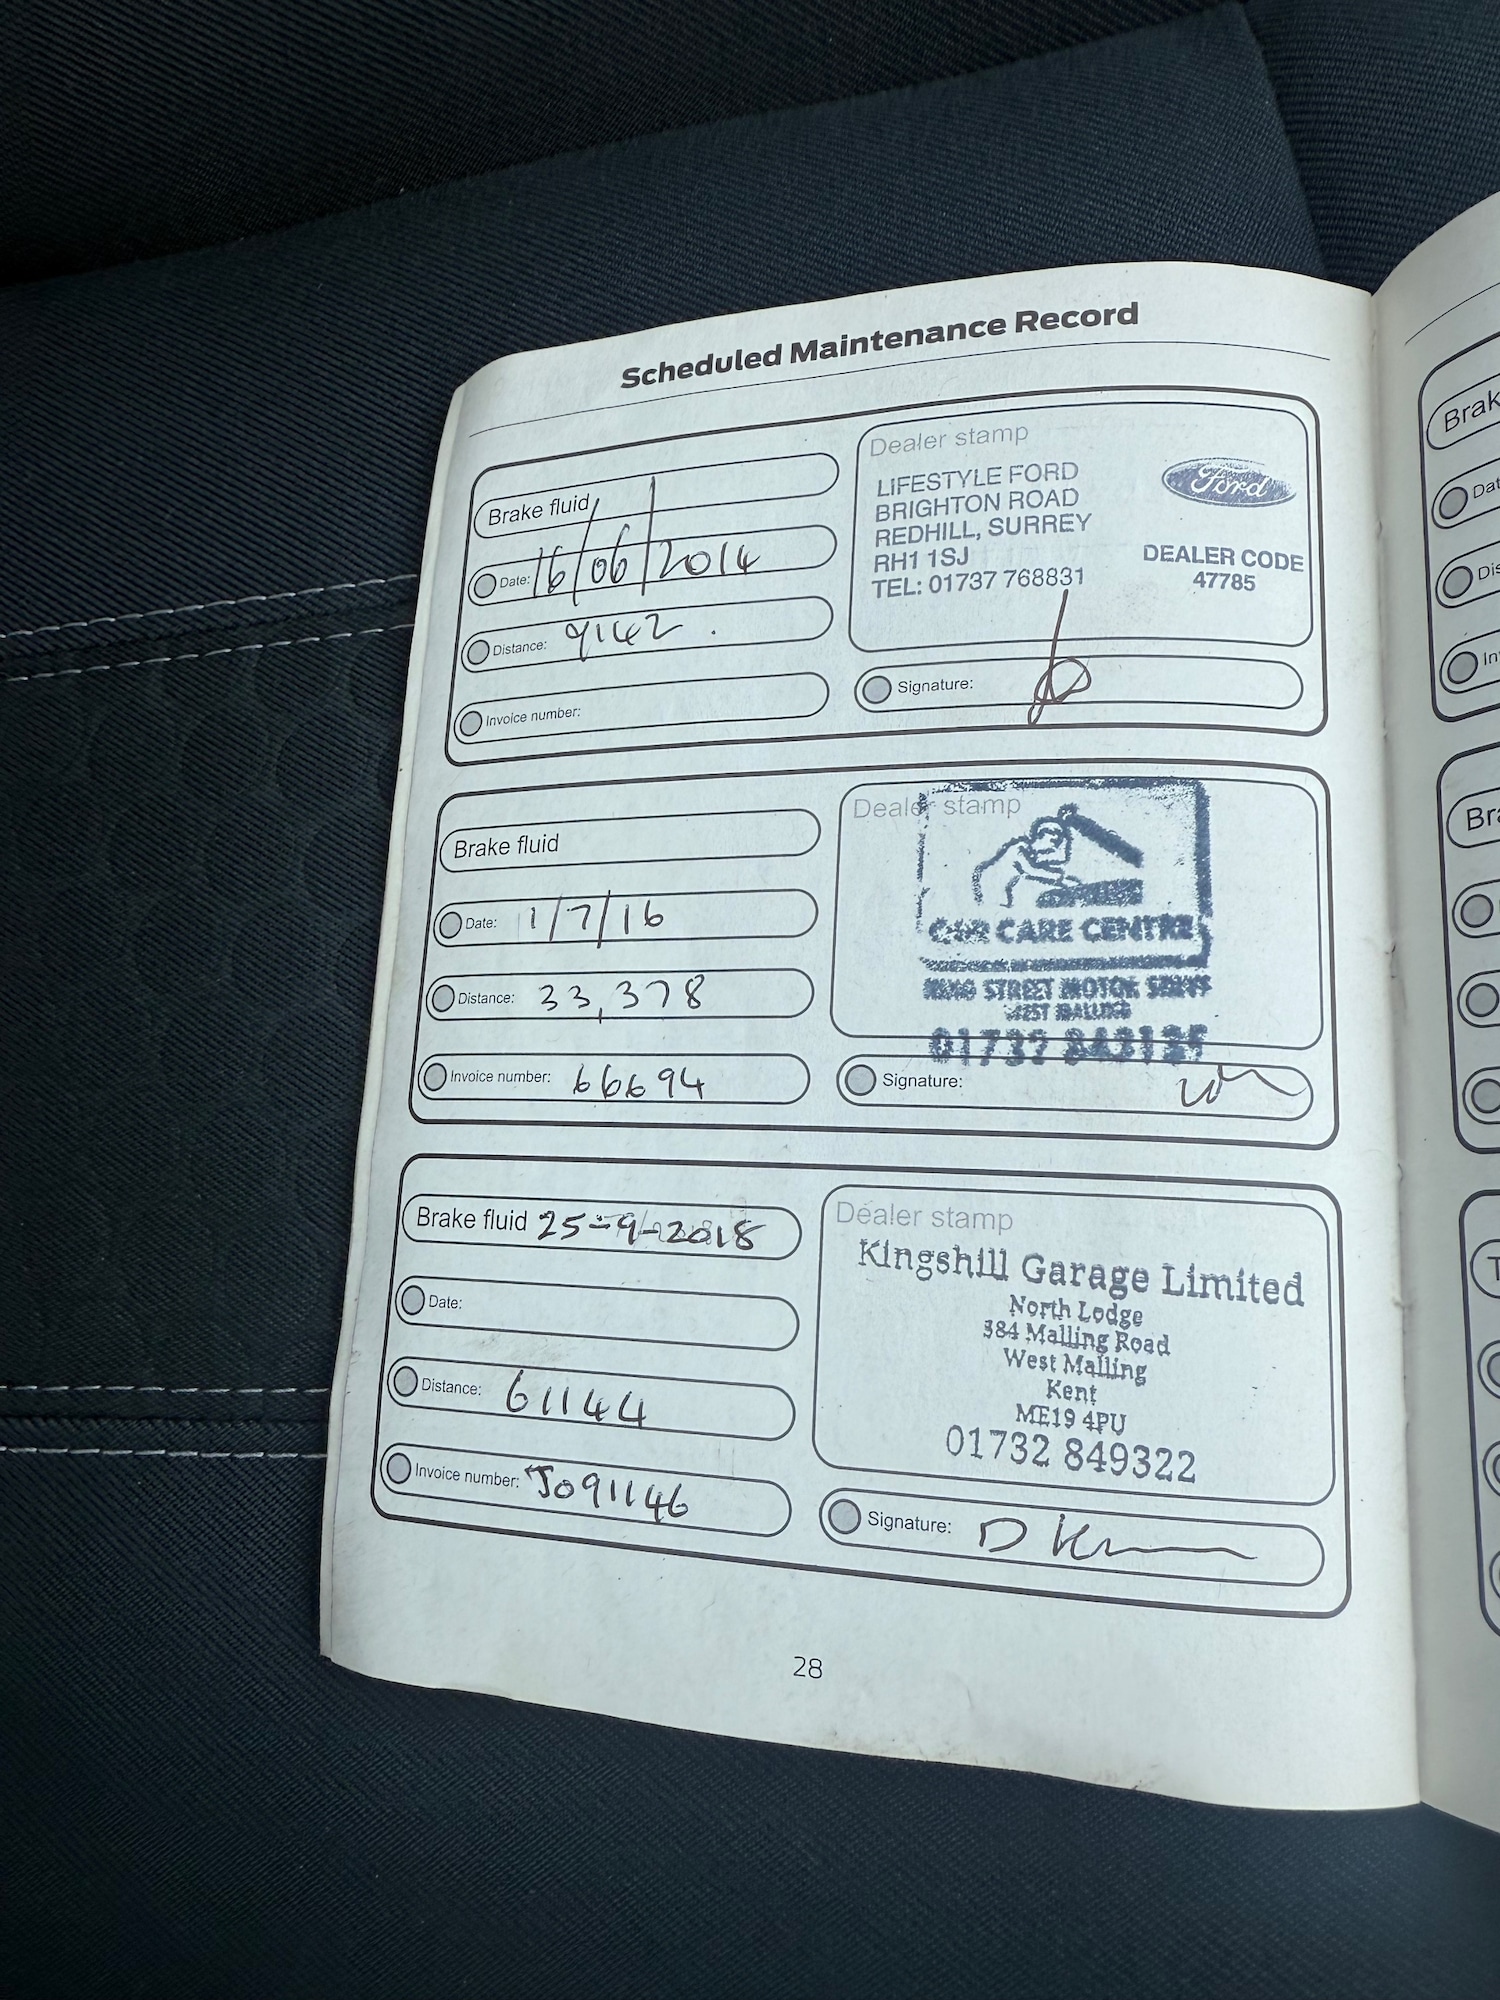 Scheduled Maintenance Record
Brake fluid
Date: 16/06/2014
Distance: 9142
Invoice number:
Dealer stamp
LIFESTYLE FORD
BRIGHTON ROAD
REDHILL, SURREY
RH1 1SJ
TEL: 01737 768831
Ford
DEALER CODE
47785
Signature:
Brake fluid
Date: 1/7/16
Distance: 33,378
Invoice number: 66694
Dealer stamp
CAR CARE CENTRE
STREET MOTOR
WEST MALLING
01732
Signature:
Brake fluid 25-9-2018
Date:
Distance: 61144
Invoice number: J091146
Dealer stamp
Kingshill Garage Limited
North Lodge
384 Malling Road
West Malling
Kent
ME19 4PU
01732 849322
Signature: D
28
Brak
Dat
Dis
In
Bra
T